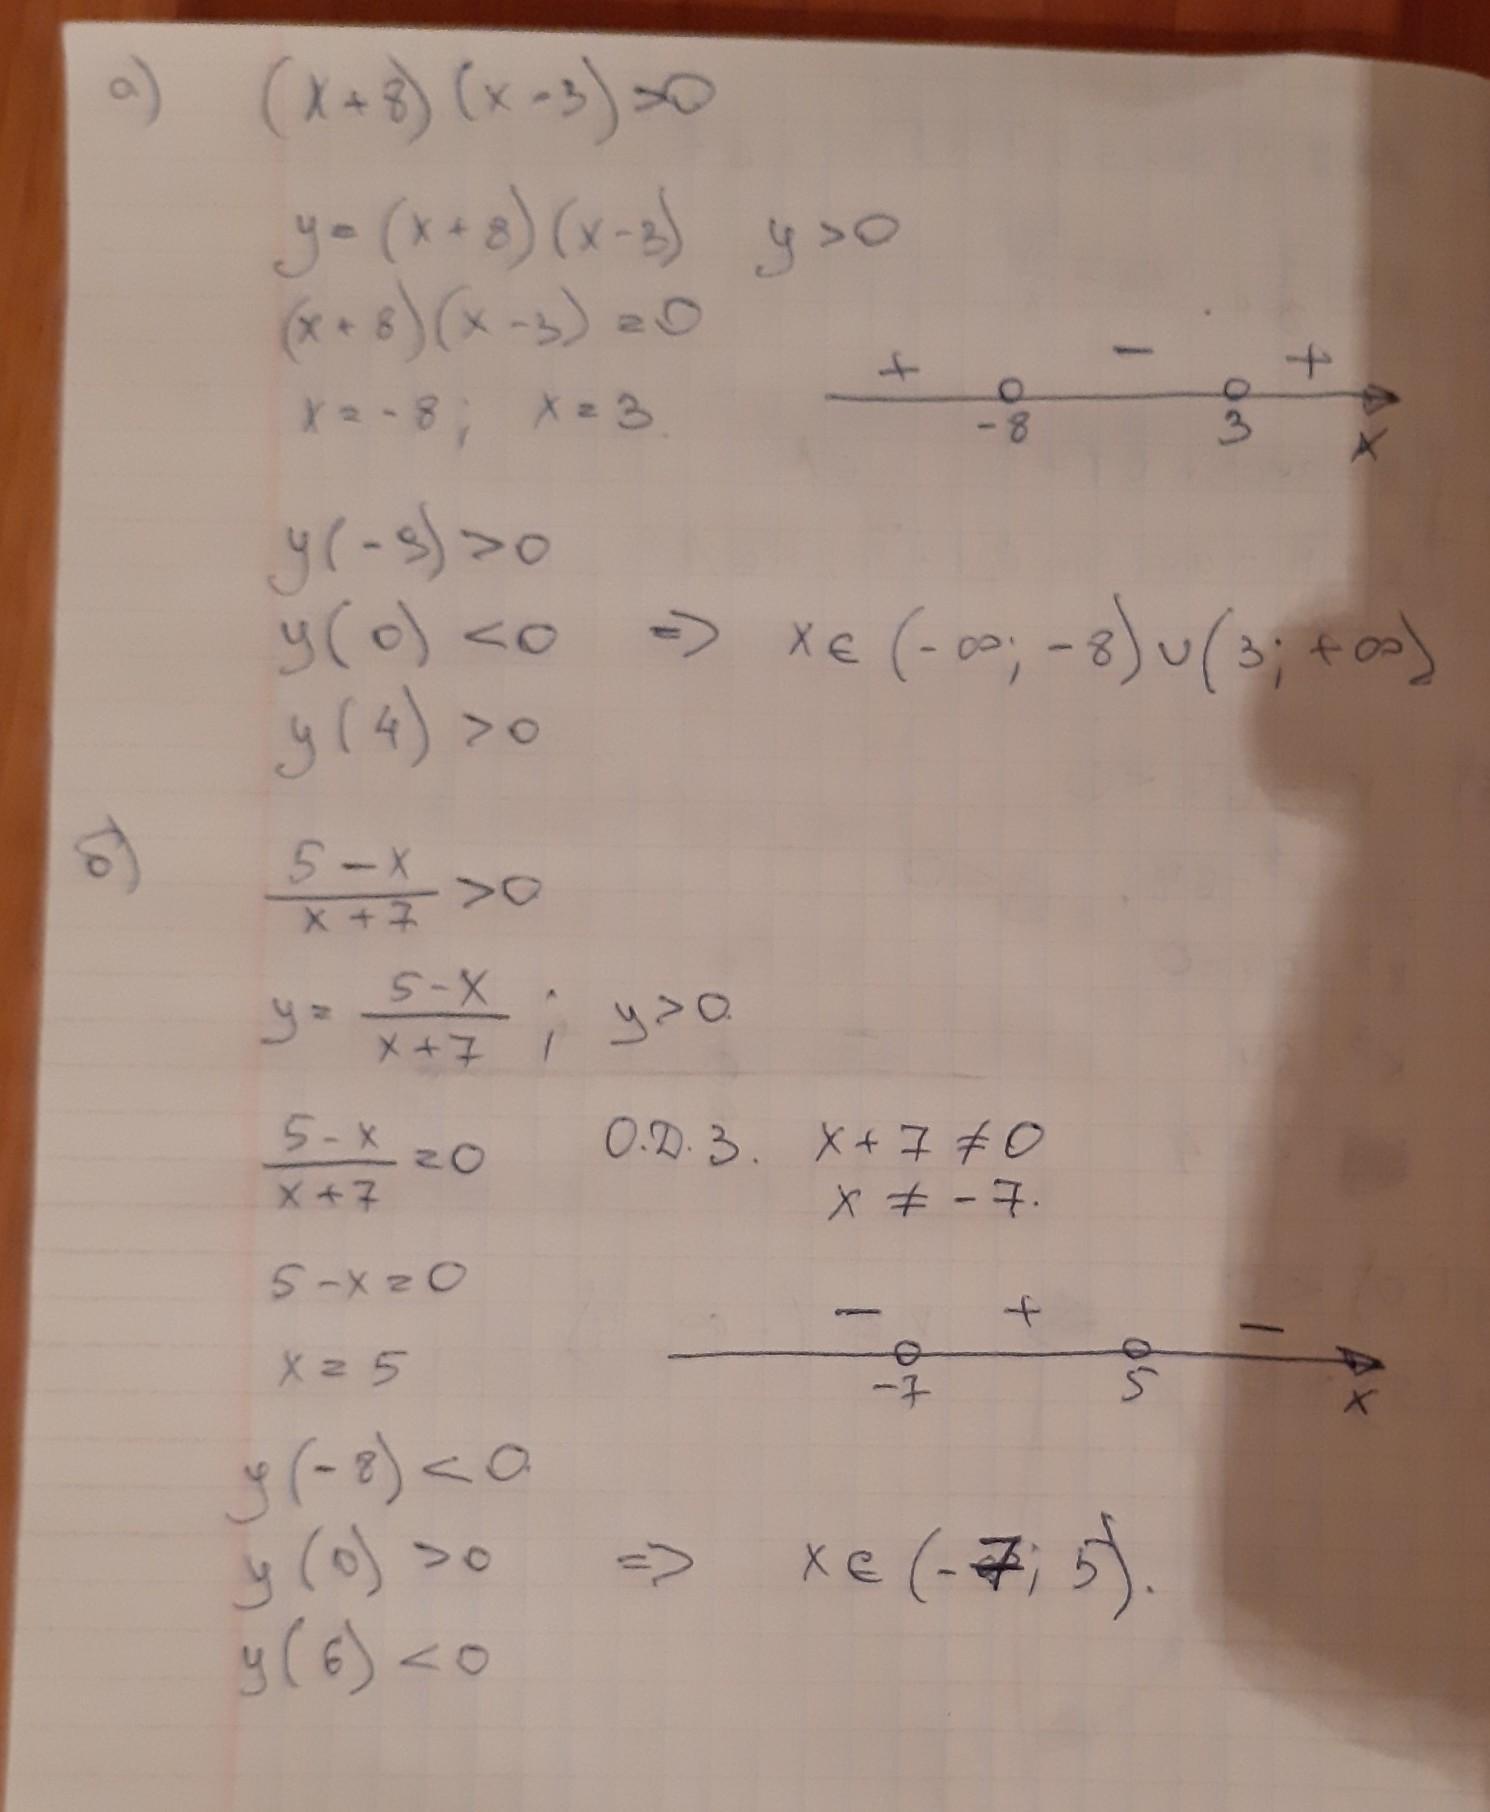 а) (x+8)(x-3)>0
y=(x+8)(x-3) y>0
(x+8)(x-3)=0
x=-8; x=3.
+ - +
-8 3 x
y(-9)>0
y(0)<0 => x∈(-∞;-8)∪(3;+∞)
y(4)>0
б) (5-x)/(x+7)>0
y=(5-x)/(x+7); y>0.
(5-x)/(x+7)=0 О.Д.З. x+7≠0
x≠-7.
5-x=0
- + -
x=5
-7 5 x
y(-8)<0
y(0)>0 => x∈(-7;5).
y(6)<0